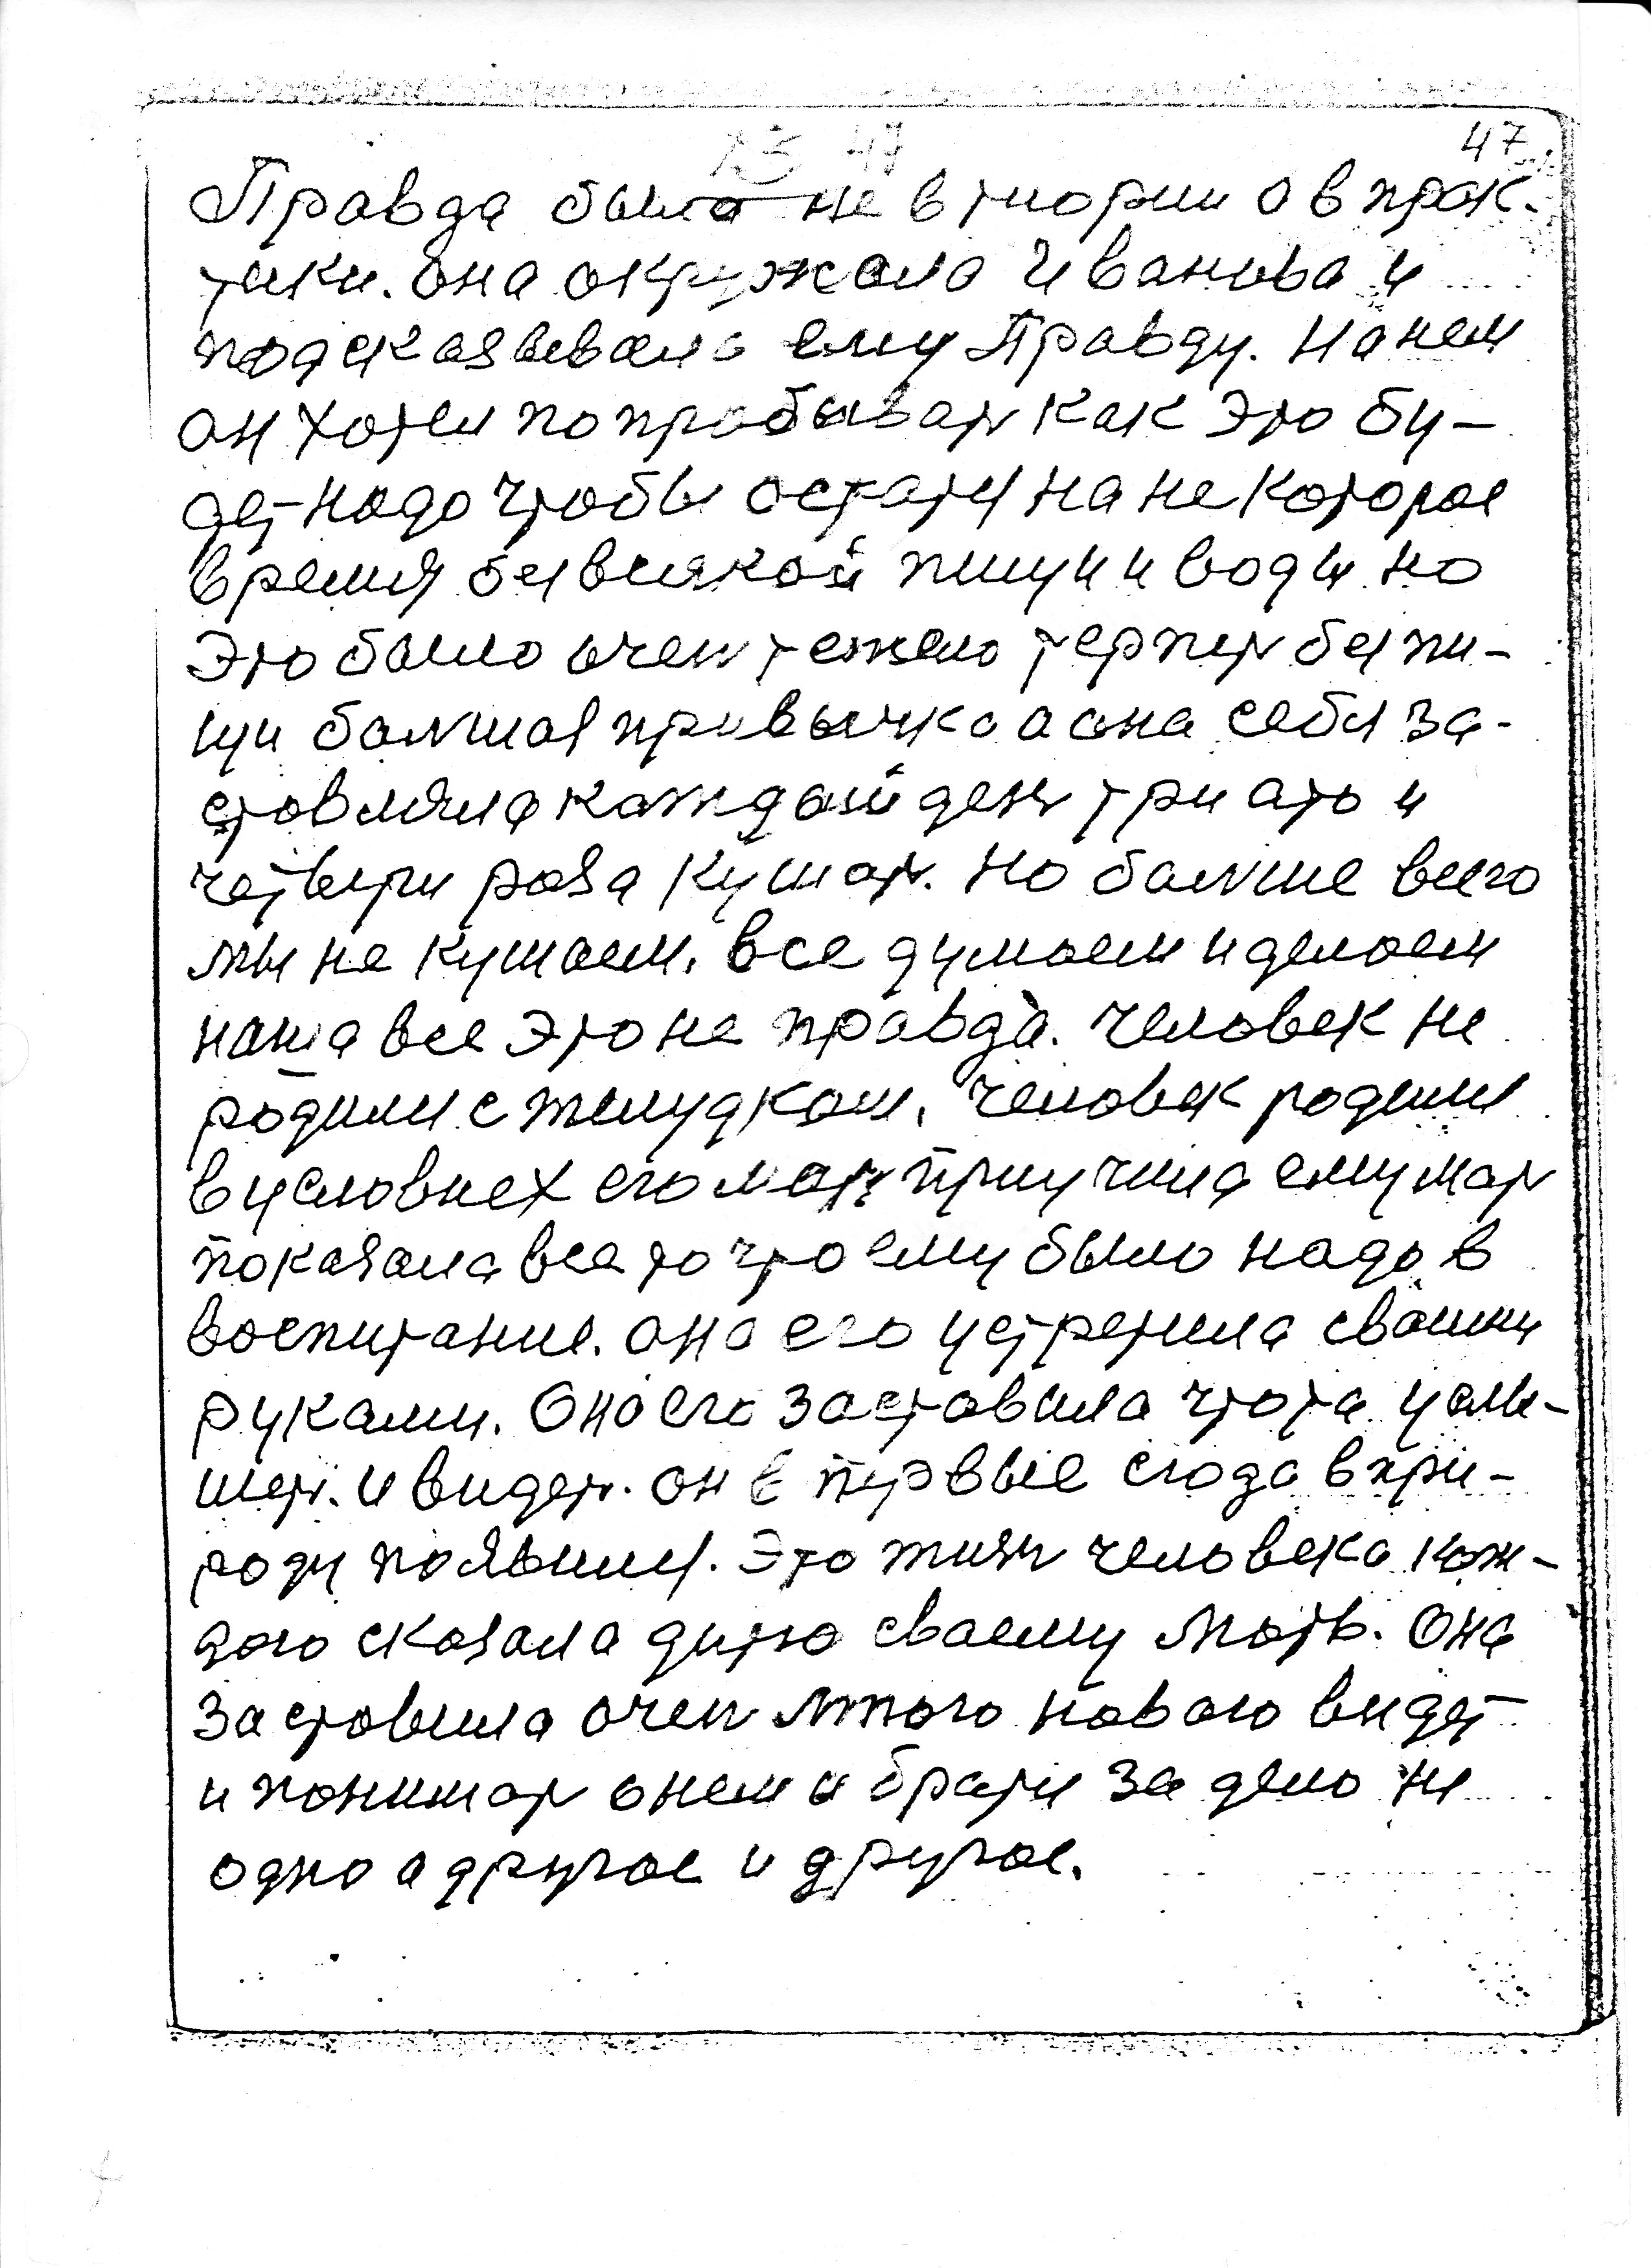 47
Правда была не в тиории а в прак-
тики. она окружала Иванова и
подсказывала ему Правду. На нем
он хотел попробывать как это бу-
дет надо чтобы остатся на некоторое
время без всякой пищи и воды но
Это было очень тежело терпеть без пи-
щи большая привычка а она себя за-
стовляла каждый день три ато и
четыри раза кушать. Но больше всего
мы не кушаем. все думаем и делаем
на все это не правда. Человек не
родился с желудком. Человек родился
в условиех его мать приучила ему мать
показала все то что ему было надо в
воспитание. она его устретила своими
руками. Она его заставила чтота услы-
шеть. и видеть. он в первые сюда в при-
роду появился. Это жизнь человека каж-
дого сказала дитю сваему Мать. Она
заставила очень много новаго видеть
и понимать о нем и братся за дело не
одно а другое и другое.